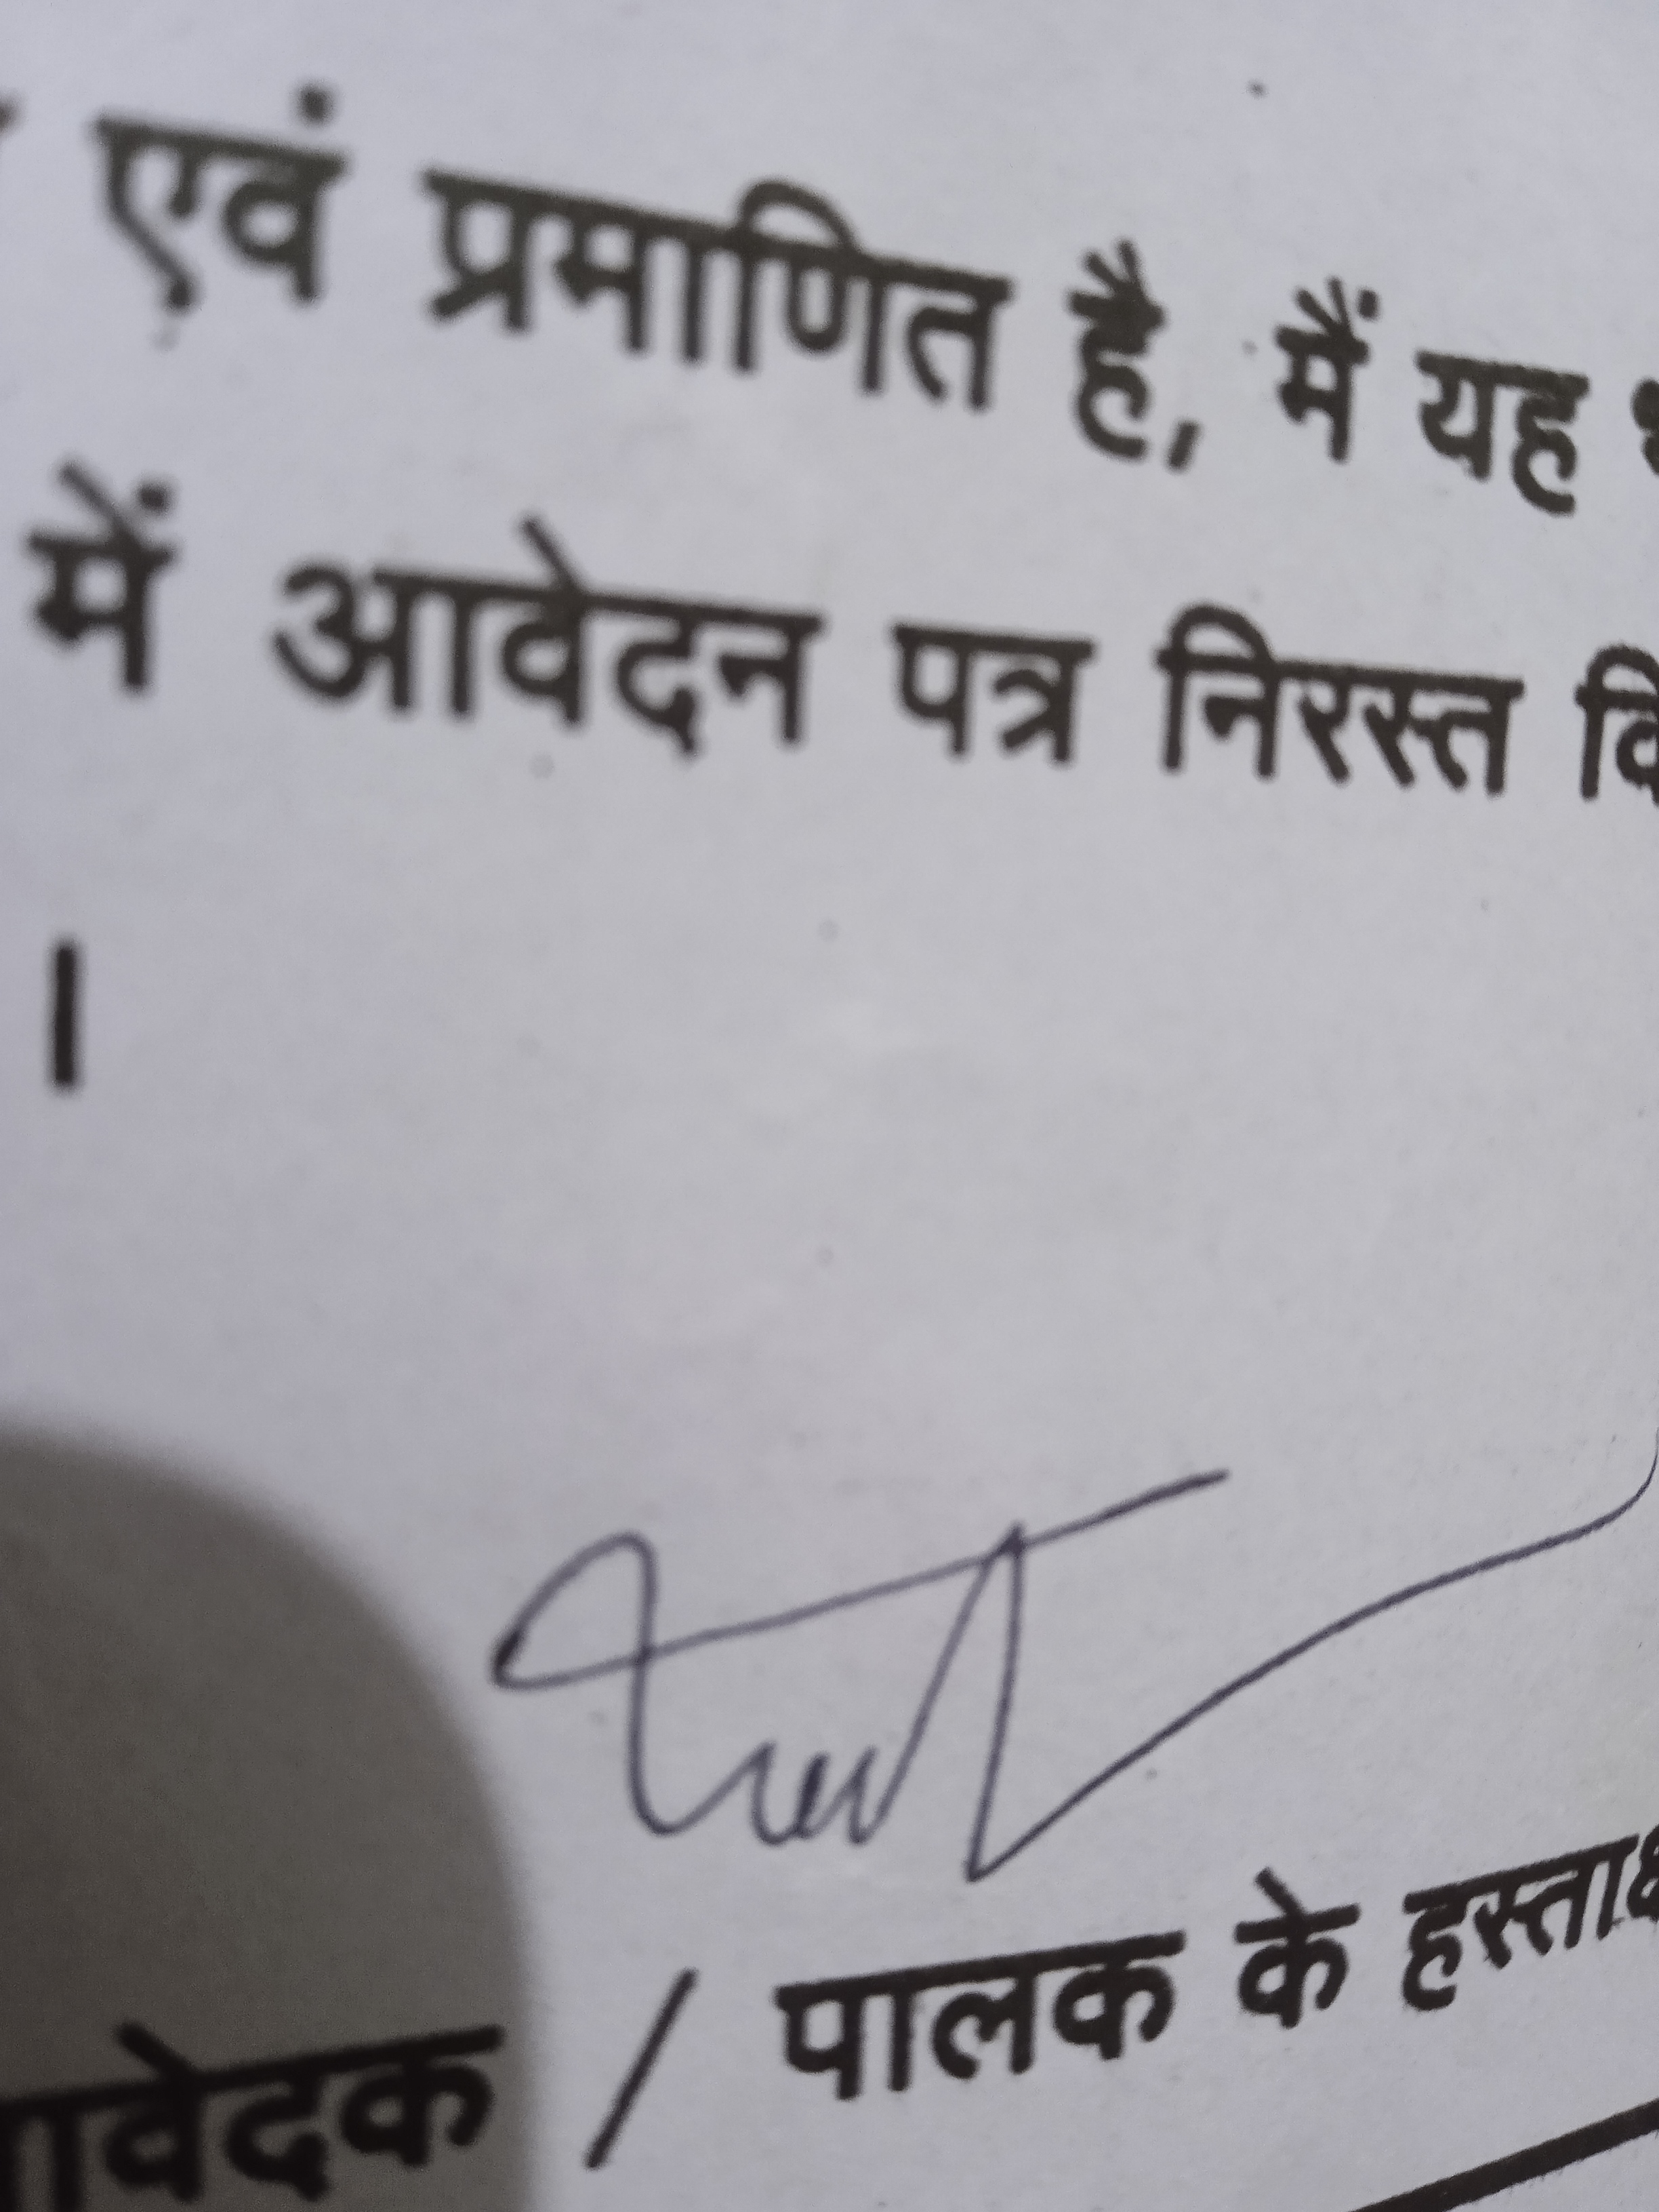 एवं प्रमाणित है, मैं यह
में आवेदन पत्र निरस्त
।
आवेदक / पालक के हस्ताक्ष